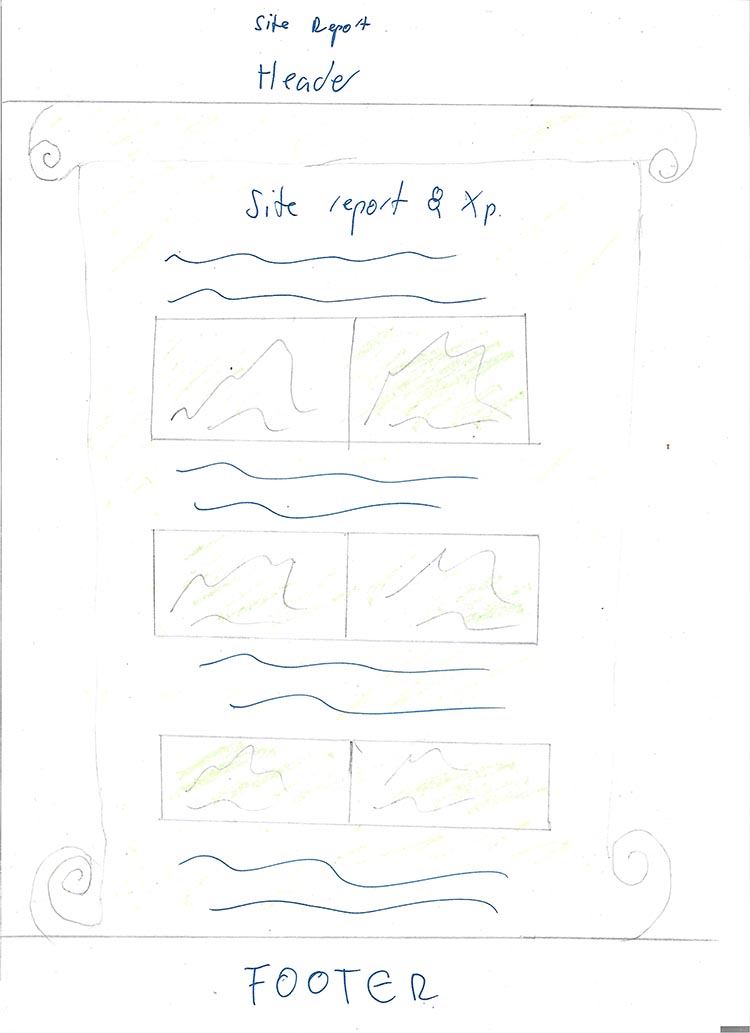 Site Report
Header
Site report & Xp.
FOOTER